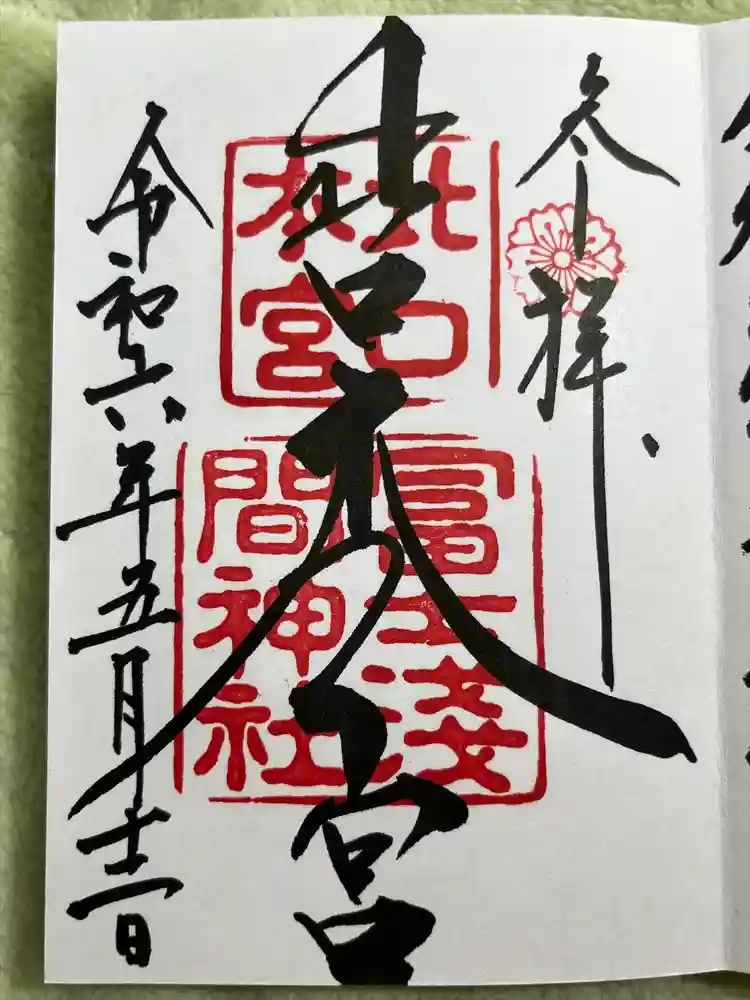 参拝
北口
本宮
冨士浅
間神社
北口本宮
令和六年五月十二日